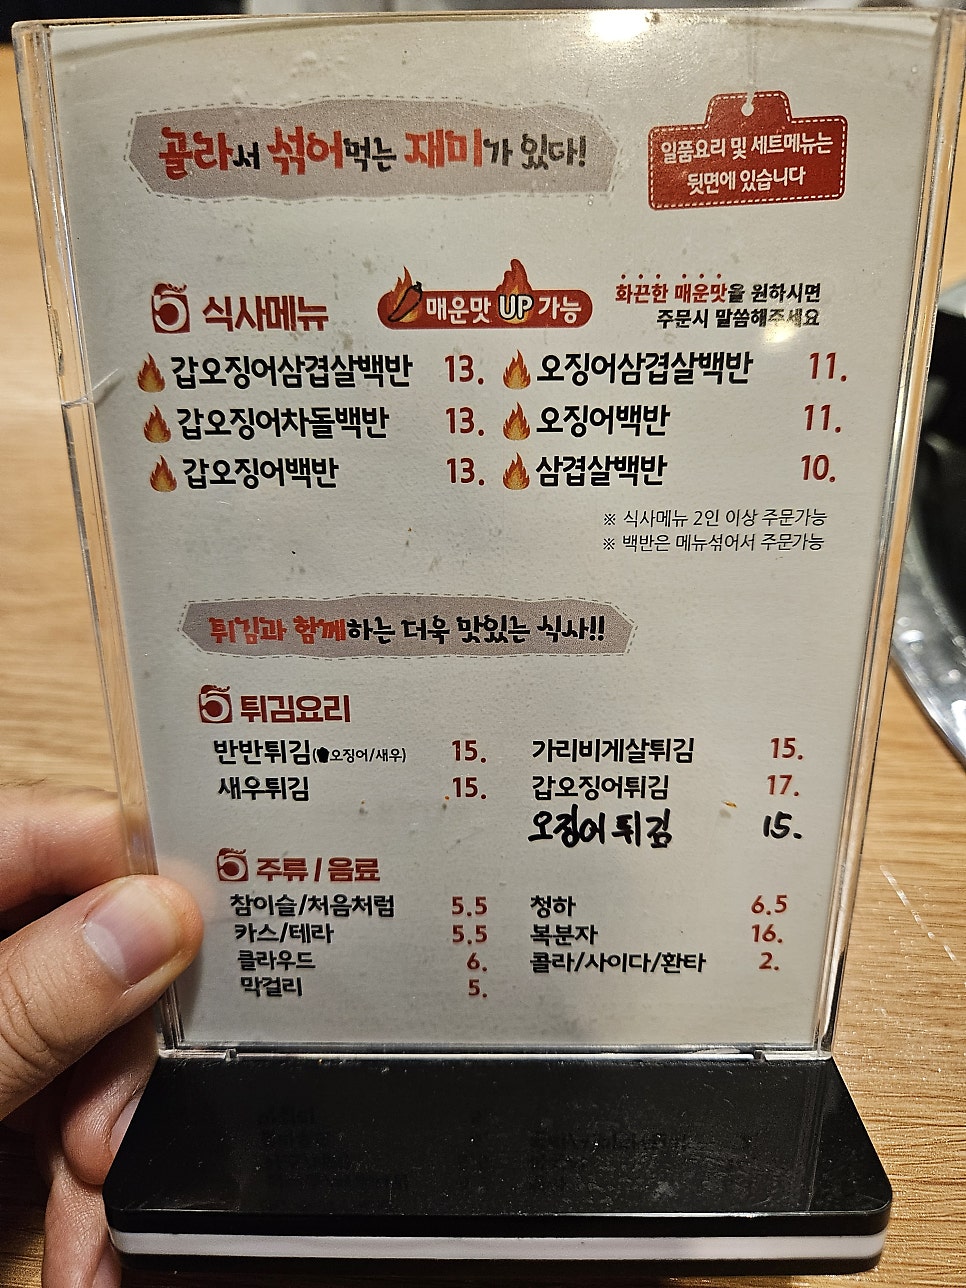 골라서 섞어먹는 재미가 있다!
일품요리 및 세트메뉴는
뒷면에 있습니다
5 식사메뉴
매운맛 UP 가능
화끈한 매운맛을 원하시면
주문시 말씀해주세요
갑오징어삼겹살백반 13. 오징어삼겹살백반 11.
갑오징어차돌백반 13. 오징어백반 11.
갑오징어백반 13. 삼겹살백반 10.
※ 식사메뉴 2인 이상 주문가능
※ 백반은 메뉴섞어서 주문가능
튀김과 함께하는 더욱 맛있는 식사!!
5 튀김요리
반반튀김(오징어/새우) 15. 가리비게살튀김 15.
새우튀김 15. 갑오징어튀김 17.
오징어튀김 15.
5 주류 / 음료
참이슬/처음처럼 5.5 청하 6.5
카스/테라 5.5 복분자 16.
클라우드 6. 콜라/사이다/환타 2.
막걸리 5.